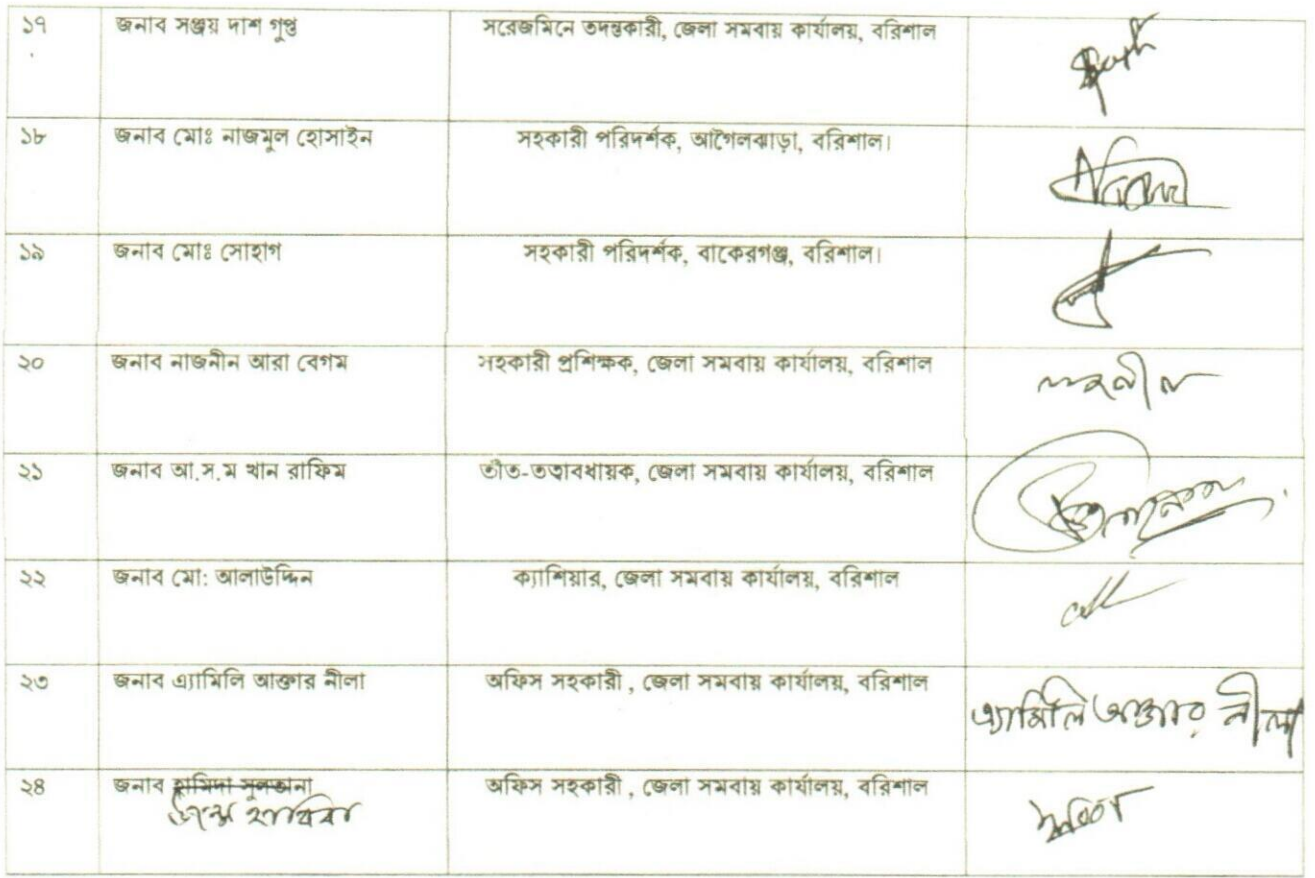 ১৭ জনাব সঞ্জয় দাশ গুপ্ত সরেজমিনে তদন্তকারী, জেলা সমবায় কার্যালয়, বরিশাল
১৮ জনাব মোঃ নাজমুল হোসাইন সহকারী পরিদর্শক, আগৈলঝাড়া, বরিশাল।
১৯ জনাব মোঃ সোহাগ সহকারী পরিদর্শক, বাকেরগঞ্জ, বরিশাল।
২০ জনাব নাজনীন আরা বেগম সহকারী প্রশিক্ষক, জেলা সমবায় কার্যালয়, বরিশাল
২১ জনাব আ.স.ম খান রাফিম তাঁত-তত্বাবধায়ক, জেলা সমবায় কার্যালয়, বরিশাল
২২ জনাব মো: আলাউদ্দিন ক্যাশিয়ার, জেলা সমবায় কার্যালয়, বরিশাল
২৩ জনাব এ্যামিলি আক্তার নীলা অফিস সহকারী , জেলা সমবায় কার্যালয়, বরিশাল এ্যামিলি আক্তার নীলা
২৪ জনাব হামিদা সুলতানা অফিস সহকারী , জেলা সমবায় কার্যালয়, বরিশাল
হাবিবা